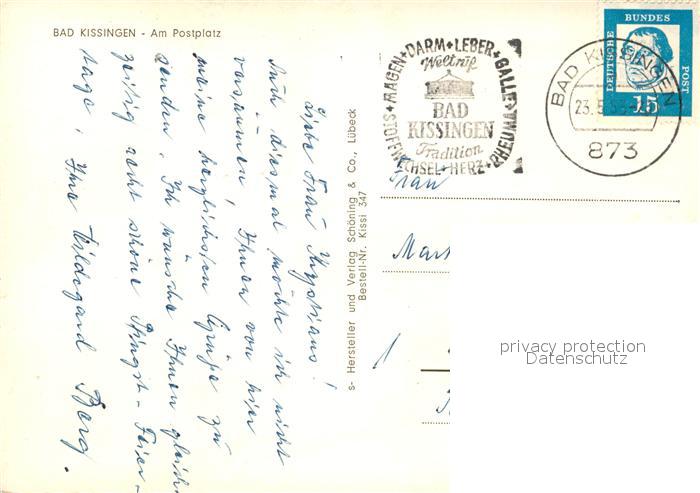 BAD KISSINGEN - Am Postplatz
Liebe Frau
Auch diesmal möchte ich nicht
versäumen, Ihnen von hier
meine herzlichsten Grüße zu
senden. Ich wünsche Ihnen gleich-
zeitig recht schöne Pfingst-Feier-
tage, Ihre Hildegard Berg.
s- Hersteller und Verlag Schöning & Co., Lübeck
Bestell-Nr. Kissi 347
STOFFWECHSEL + MAGEN + DARM + LEBER + GALLE + RHEUMA + HERZ
Weltruf
BAD
KISSINGEN
Tradition
BAD KISSINGEN
23.5.
873
DEUTSCHE BUNDESPOST
15
Frau
privacy protection
Datenschutz